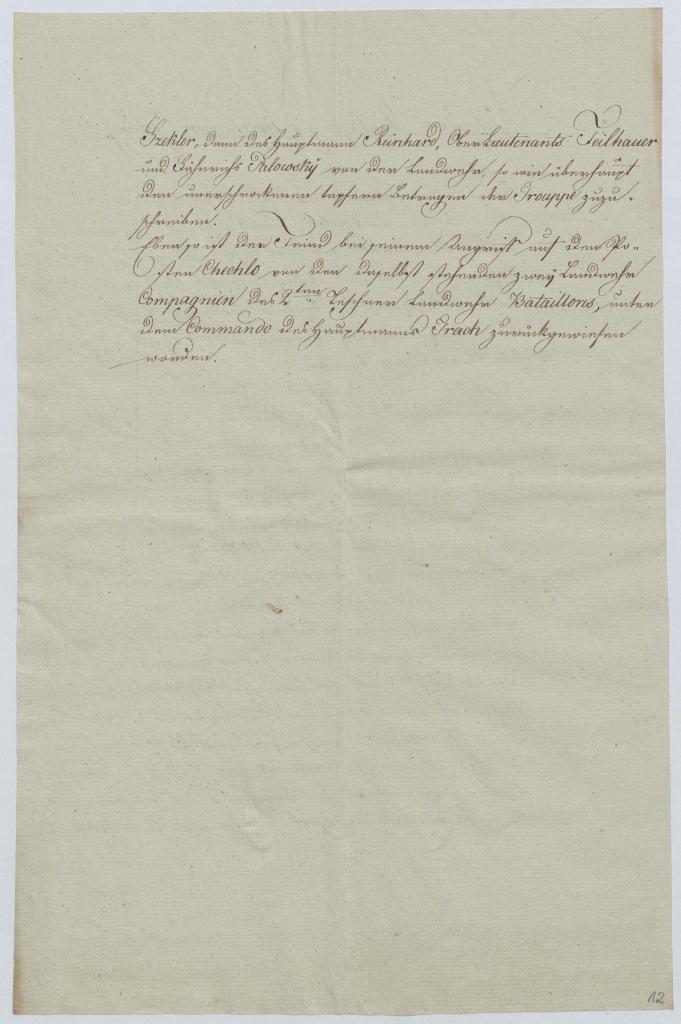 Szekler, dann des Hauptmann Reinhard, Ober Lieutenants Feilhauer
und Fähnrichs Palowsky von der Landwehr, so wie überhaupt
den unerschrockenen tapfern Betragen der Trouppe zuzu-
schreiben.
Eben so ist der Feind bei seinem Angriff auf den Po-
sten Chechlo von den daselbst stehenden zwey Landwehr
Compagnien des 2ten Teschner Landwehr Bataillons, unter
dem Commando des Hauptmanns Trach zurückgewiesen
worden.
12